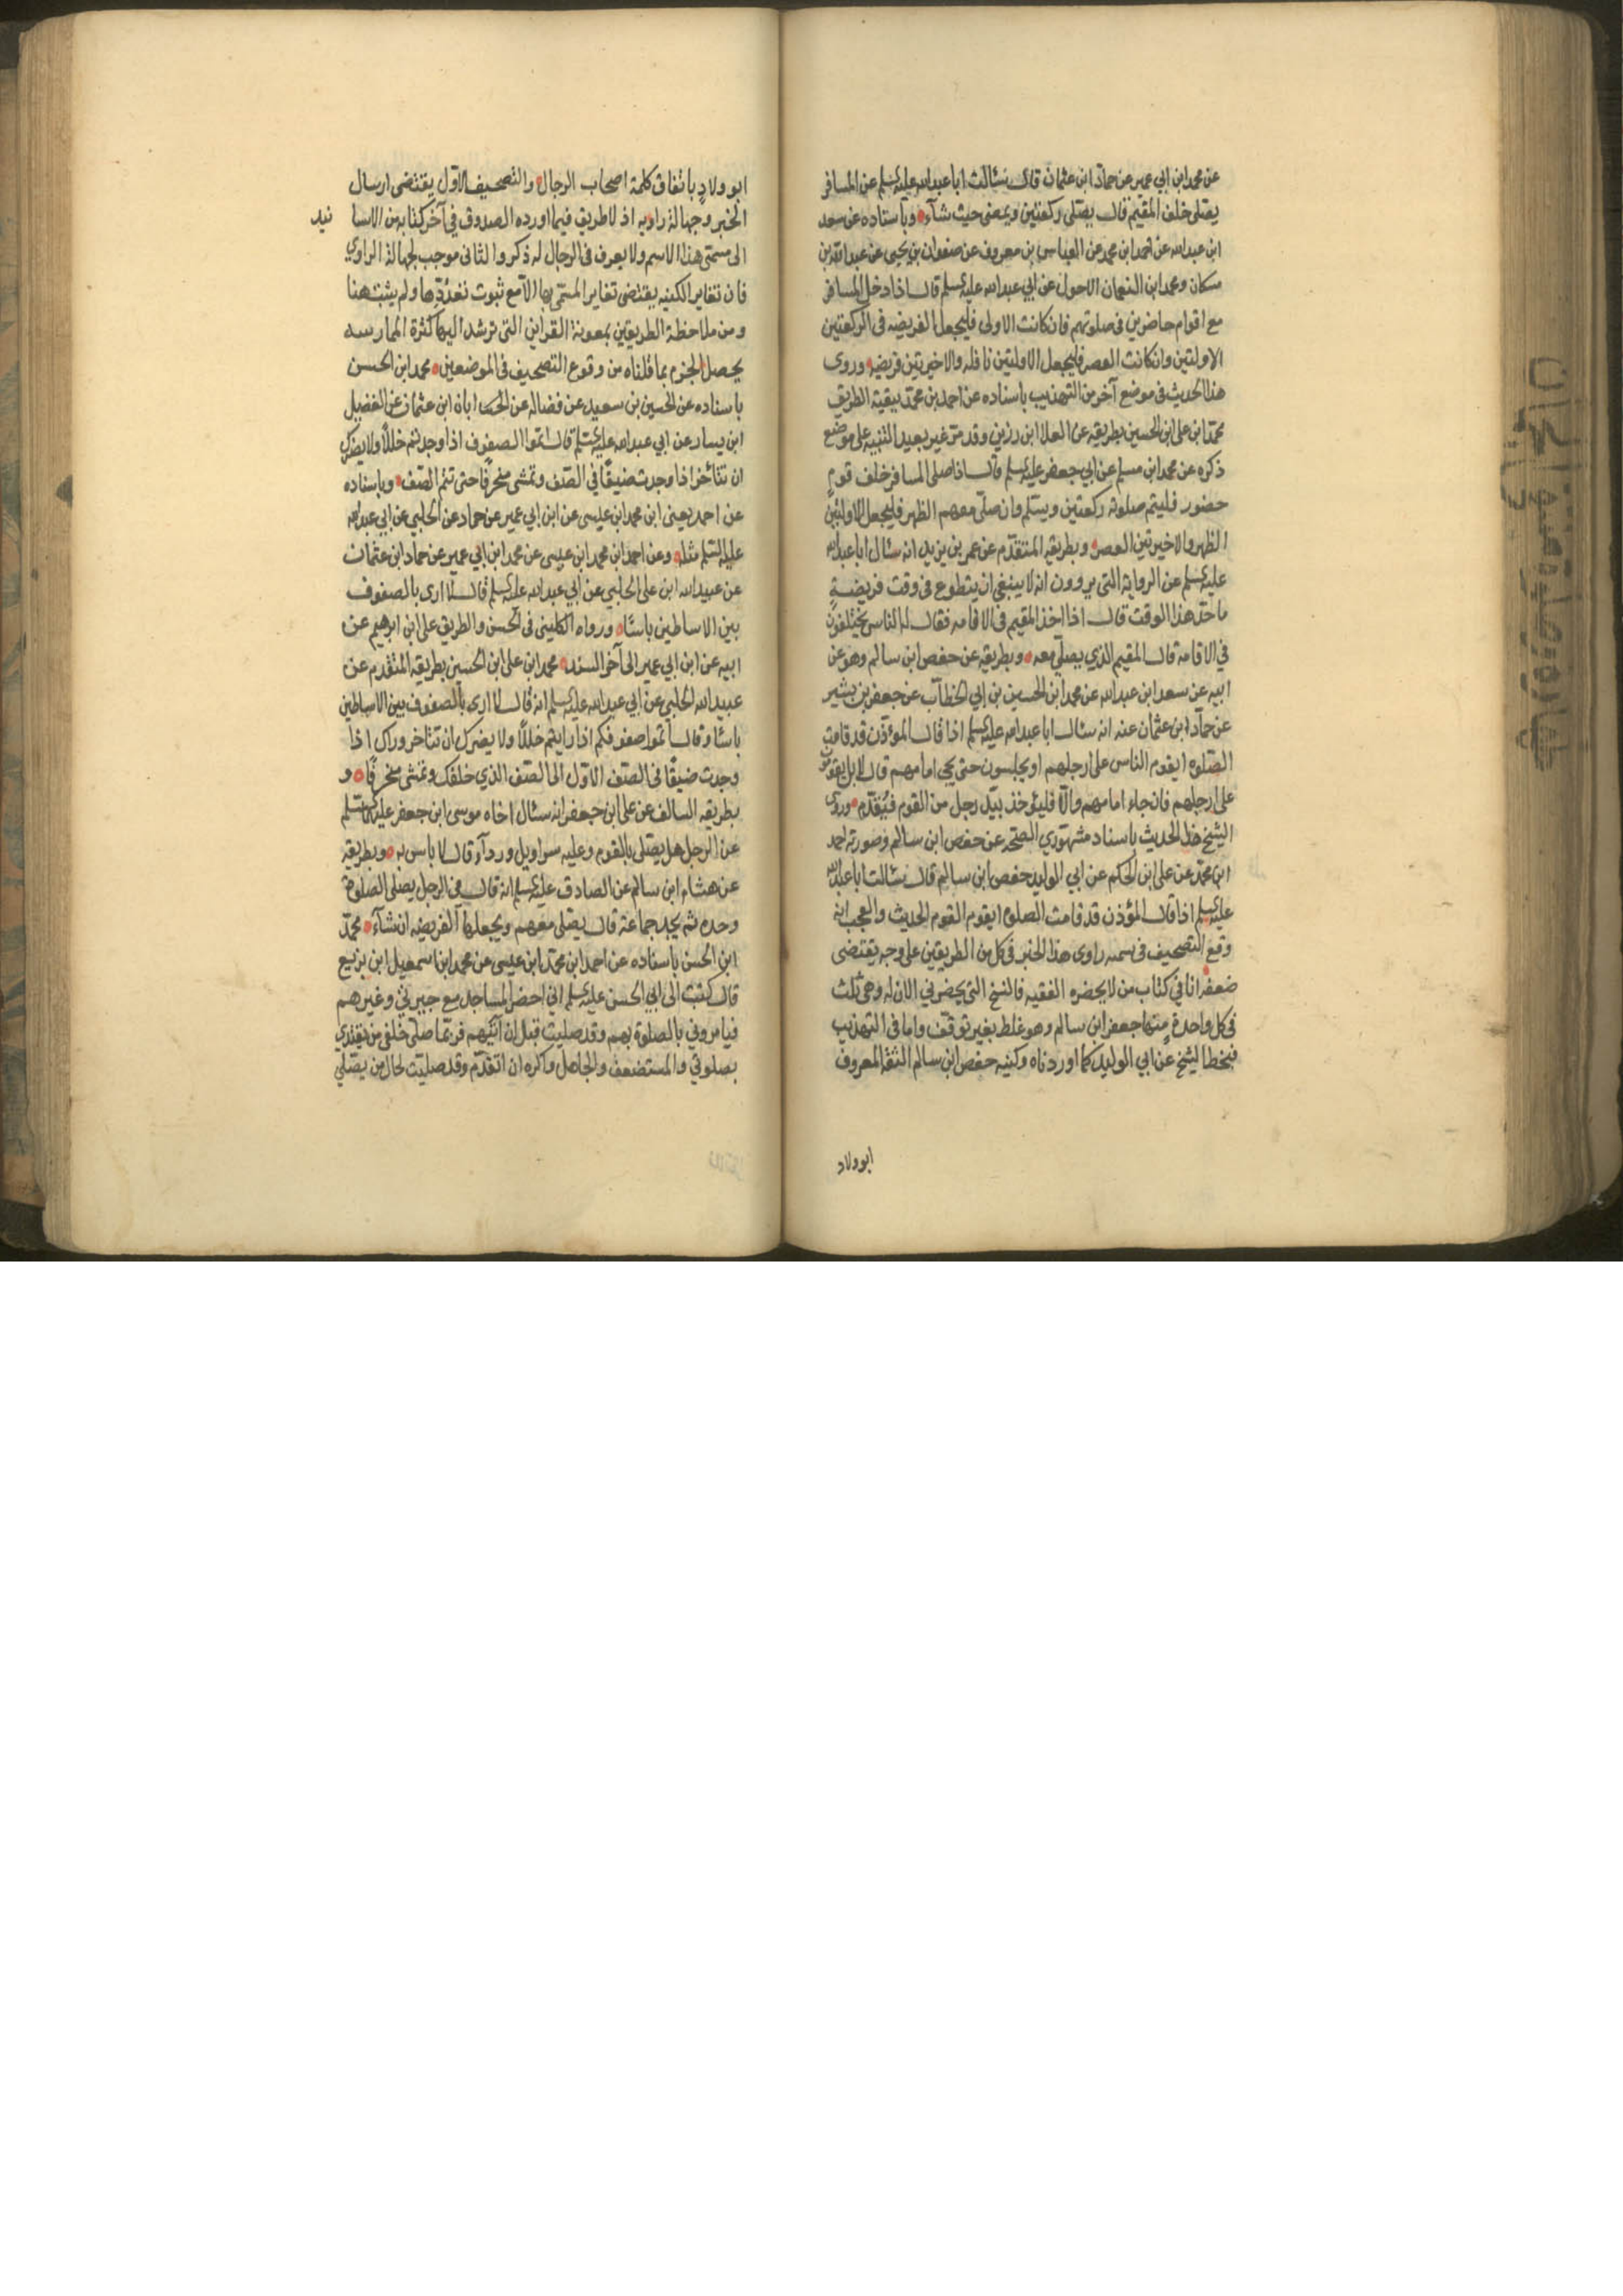 عن محمد ابن ابي عمير عن حماد ابن عثمان قال سئالت ابا عبد الله عليه السلم عن المسافر
يصلى خلف المقيم قال يصلى ركعتين ويمضى حيث شآء وباسناده عن سعد
ابن عبد الله عن احمد ابن محمد عن العباس بن معروف عن صفوان بن يحيى عن عبد الله بن
مسكان ومحمد ابن النعمان الاحول عن ابي عبد الله عليه السلم قال اذا دخل المسافر
مع اقوام حاضرين في صلوتهم فان كانت الاولى فليجعل الفريضه في الركعتين
الاولتين وان كانت العصر فليجعل الاولتين نافله والاخيرتين فريضه وروى
هذا الحديث في موضع آخر من التهذيب باسناده عن احمد بن محمد ببقية الطريق
محمد ابن على ابن الحسين بطريقه عن العلا ابن رزين وقد مر غير بعيد التنبيه على موضع
ذكره عن محمد ابن مسلم عن ابي جعفر عليه السلم قال اذا صلى المسافر خلف قوم
حضور فليتم صلوته ركعتين ويسلم وان صلى معهم الظهر فليجعل الاولتين
الظهر والاخيرتين العصر وبطريقه المتقدم عن عمر بن يزيد انه سئال ابا عبد الله
عليه السلم عن الرواية التي يروون انه لا ينبغي ان يتطوع في وقت فريضة
ما حد هذا الوقت قال اذا اخذ المقيم في الاقامه فقال له الناس يختلفون
في الاقامة قال المقيم الذي يصلى معه وبطريقه عن حفص ابن سالم وهو عن
ابيه عن سعد ابن عبد الله عن محمد ابن الحسين بن ابي الخطاب عن جعفر بن بشير
عن حماد ابن عثمان عنه انه سئال ابا عبد الله عليه السلم اذا قال المؤذن قد قامت
الصلوه ايقوم الناس على ارجلهم او يجلسون حتى يجي امامهم قال لا بل يقومون
على ارجلهم فان جاء امامهم والا فليئوخذ بيد رجل من القوم فيقدم وروى
الشيخ هذا الحديث باسناد مشهوري الصحه عن حفص ابن سالم وصورته احمد
ابن محمد عن على ابن الحكم عن ابي الوليد حفص ابن سالم قال سئالت ابا عبد الله
عليه السلم اذا قال المؤذن قد قامت الصلوه ايقوم القوم الحديث والعجب انه
وقع التصحيف في سمه راوى هذا الخبر في كل من الطريقين على وجه يقتضى
ضعفه اما في كتاب من لا يحضره الفقيه فالنسخ التي يحضرني الان له وهي ثلث
في كل واحدة منها جعفر ابن سالم وهو غلط بغير توقف واما في التهذيب
فبخط الشيخ عن ابي الوليد كما اوردناه وكنيه حفص ابن سالم الثقه المعروف
ابوولاد
ابو ولاد باتفاق كلمة اصحاب الرجال والتصحيف الاول يقتضى ارسال
الخبر وجهالة راويه اذ لا طريق فيما اورده الصدوق في آخر كتابه من الاسا نيد
الى مسمى هذا الاسم ولا يعرف في الرجال له ذكر والثانى موجب لجهالة الراوي
فان تغاير الكنيه يقتضى تغاير المسمى بها الا مع ثبوت تعددها ولم يثبت هنا
ومن ملاحظة الطريقين بمعونة القراين التي ترشد اليها كثرة الممارسه
يحصل الجزم بما قلناه من وقوع التصحيف في الموضعين محمد ابن الحسن
باسناده عن الحسين بن سعيد عن فضاله عن ابان ابن عثمان عن الفضيل
ابن يسار عن ابي عبد الله عليه السلم قال اتموا الصفوف اذا وجدتم خللا ولا يضرك
ان تتائخر اذا وجدت ضيقا في الصف وتمشى منحرفا حتى تتم الصف وباسناده
عن احمد يعنى ابن محمد ابن عيسى عن ابن ابي عمير عن حماد عن الحلبي عن ابي عبد الله
عليه السلم مثله وعن احمد ابن محمد ابن عيسى عن محمد ابن ابي عمير عن حماد ابن عثمان
عن عبيد الله ابن على الحلبي عن ابي عبد الله عليه السلم قال لا ارى بالصفوف
بين الاساطين باسئا ورواه الكليني في الحسن والطريق على ابن ابرهيم عن
ابيه عن ابن ابي عمير الى آخر السند محمد ابن على ابن الحسين بطريقه المتقدم عن
عبيد الله الحلبي عن ابي عبد الله عليه السلم انه قال لا ارى بالصفوف بين الاساطين
باسئا وقال اتموا صفوفكم اذا رايتم خللا ولا يضرك ان تتاخر وراك اذا
وجدت ضيقا في الصف الاول الى الصف الذي خلفك وتمشى منحرفا و
بطريقه السالف عن على ابن جعفر انه سئال اخاه موسى ابن جعفر عليهما السلم
عن الرجل هل يصلى بالقوم وعليه سراويل وردآء قال لا باس به وبطريقه
عن هشام ابن سالم عن الصادق عليه السلم انه قال في الرجل يصلى الصلوة
وحده ثم يجد جماعة قال يصلى معهم ويجعلها الفريضه ان شآء محمد
ابن الحسن باسناده عن احمد ابن محمد ابن عيسى عن محمد ابن اسمعيل ابن بزيع
قال كتبت الى ابي الحسن عليه السلم اني احضر المساجد مع جيرتي وغيرهم
فيامروني بالصلوة بهم وقد صليت قبل ان آتيهم فربما صلى خلفي من يقتدي
بصلوتي والمستضعف والجاهل واكره ان اتقدم وقد صليت لحال من يصلي